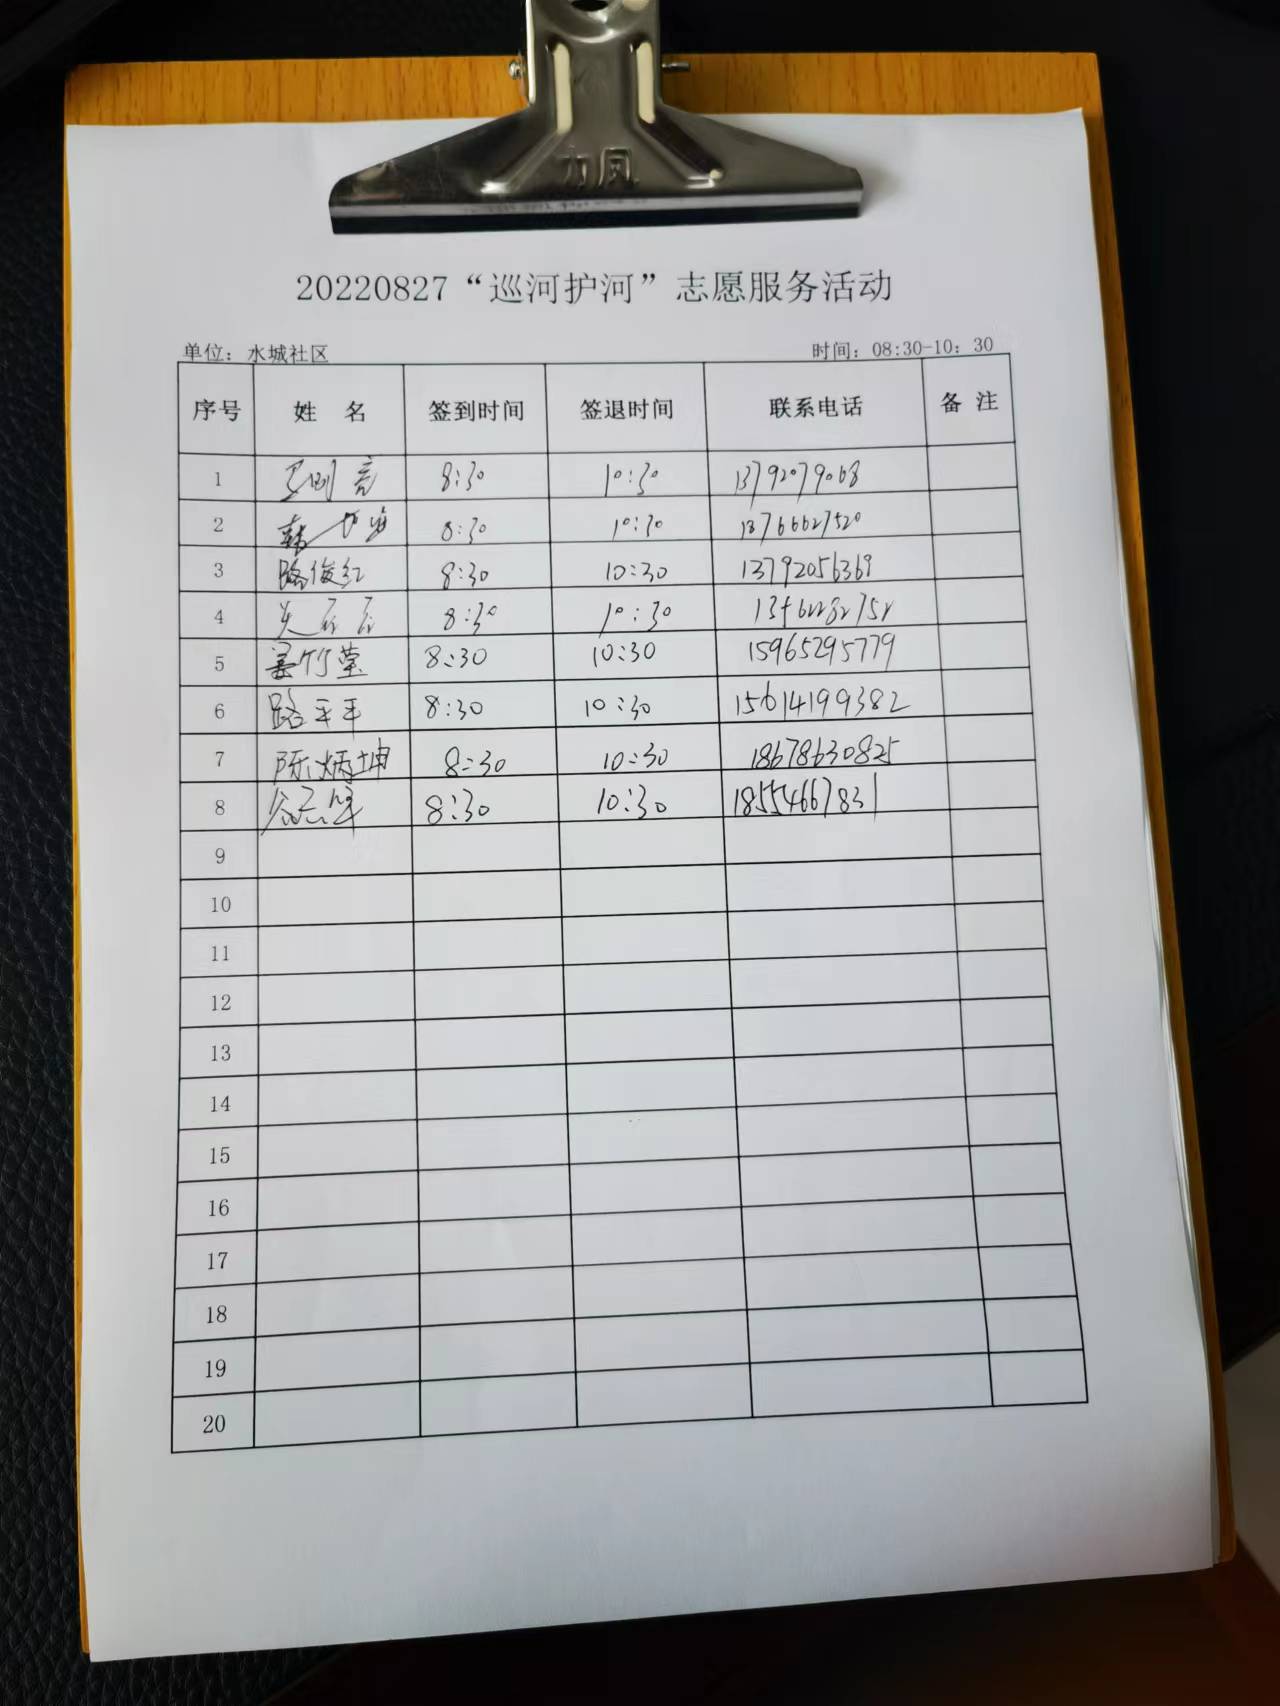 力风
20220827“巡河护河”志愿服务活动
单位：水城社区 时间：08:30-10：30
序号 姓 名 签到时间 签退时间 联系电话 备 注
1 8:30 10:30 13792079068
2 韩 8:30 10:30 13766627520
3 路俊红 8:30 10:30 13792056369
4 8:30 10:30
5 姜竹莹 8:30 10:30 15965295779
6 路平平 8:30 10:30 15614199382
7 陈炳坤 8:30 10:30 18678630825
8 8:30 10:30 18554667831
9
10
11
12
13
14
15
16
17
18
19
20